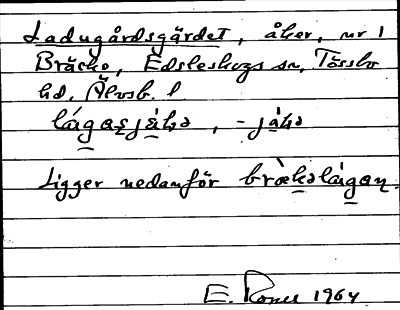 Ladugårdsgärdet, åker, nr 1
Bräcke, Edsleskogs sn, Tössbo
hd, Älvsb. l
lágasjàkə, -jàkə
Ligger nedanför brækəlágan.
E. 1964